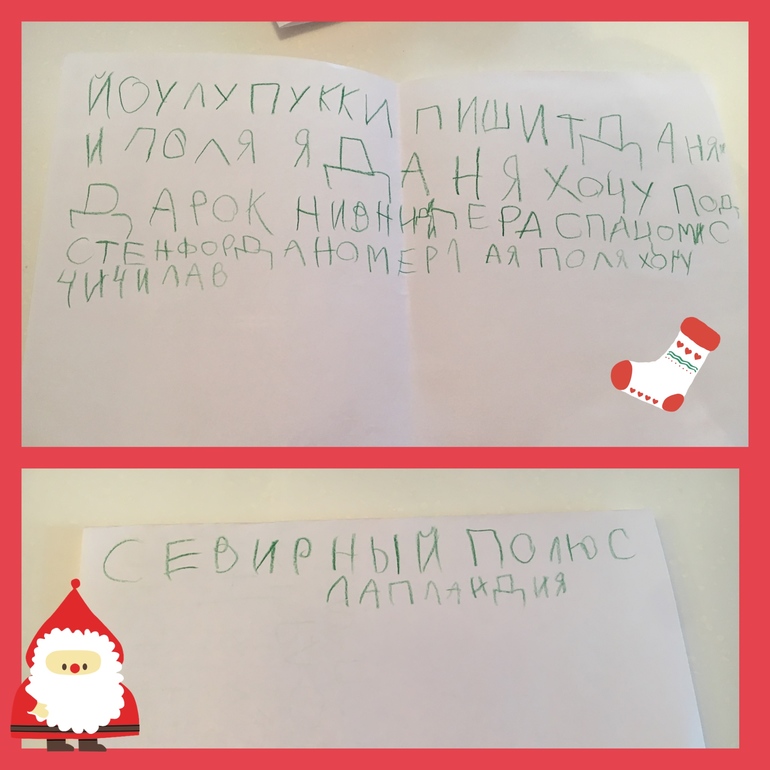 ЙОУЛУПУККИ ПИШИТ ДАНЯ
И ПОЛЯ Я ДАНЯ ХОЧУ ПОД
ДАРОК СПАЦОМИС
СТЕНФОРДАНОМЕР1 АЯ ПОЛЯ ХОЧУ
ЧИЧИЛАВ
СЕВИРНЫЙ ПОЛЮС
ЛАПЛАНДИЯ